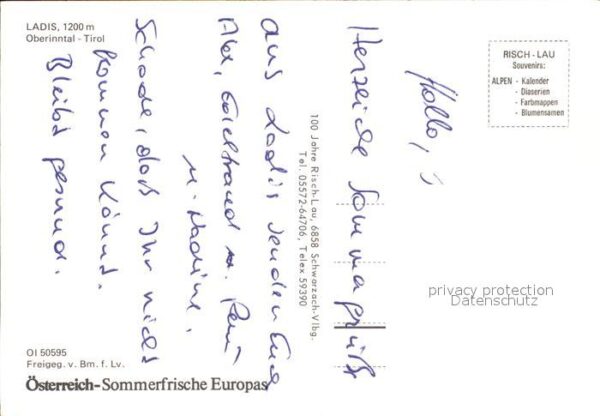 LADIS, 1200 m
Oberinntal - Tirol
RISCH - LAU
Souvenirs:
ALPEN - Kalender
- Diaserien
- Farbmappen
- Blumensamen
Hallo,
Herzliche Sommergrüße
aus Ladis senden Euch
u. Nadine.
Schade, daß Ihr nicht
kommen könnt.
Bleibt gesund.
100 Jahre Risch-Lau, 6858 Schwarzach-Vlbg.
Tel. 05572-64706, Telex 59390
privacy protection
Datenschutz
OI 50595
Freigeg. v. Bm. f. Lv.
Österreich-Sommerfrische Europas